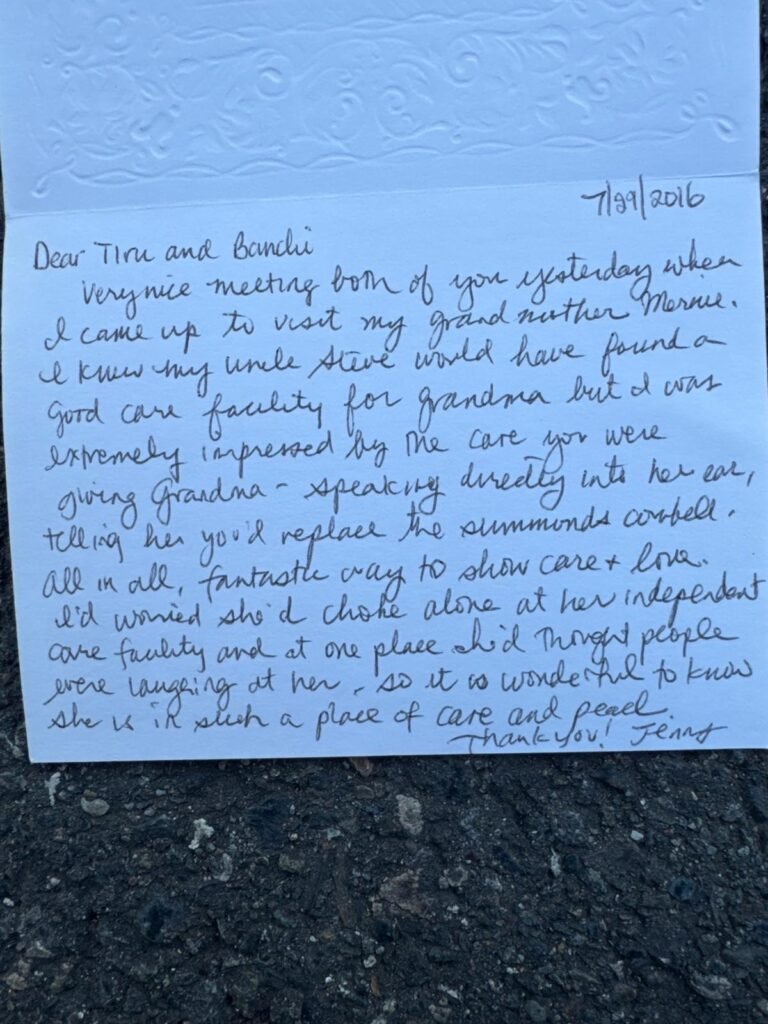 7/29/2016
Dear Tiru and Bandi
Very nice meeting both of you yesterday when
I came up to visit my grandmother Mernie.
I knew my uncle Steve would have found a
good care facility for grandma but I was
extremely impressed by the care you were
giving Grandma - speaking directly into her ear,
telling her you'd replace the summonds cowbell.
All in all, fantastic way to show care + love.
I'd worried she'd choke alone at her independent
care facility and at one place she'd thought people
were laughing at her, so it is wonderful to know
she is in such a place of care and peace.
Thank you! Jenny